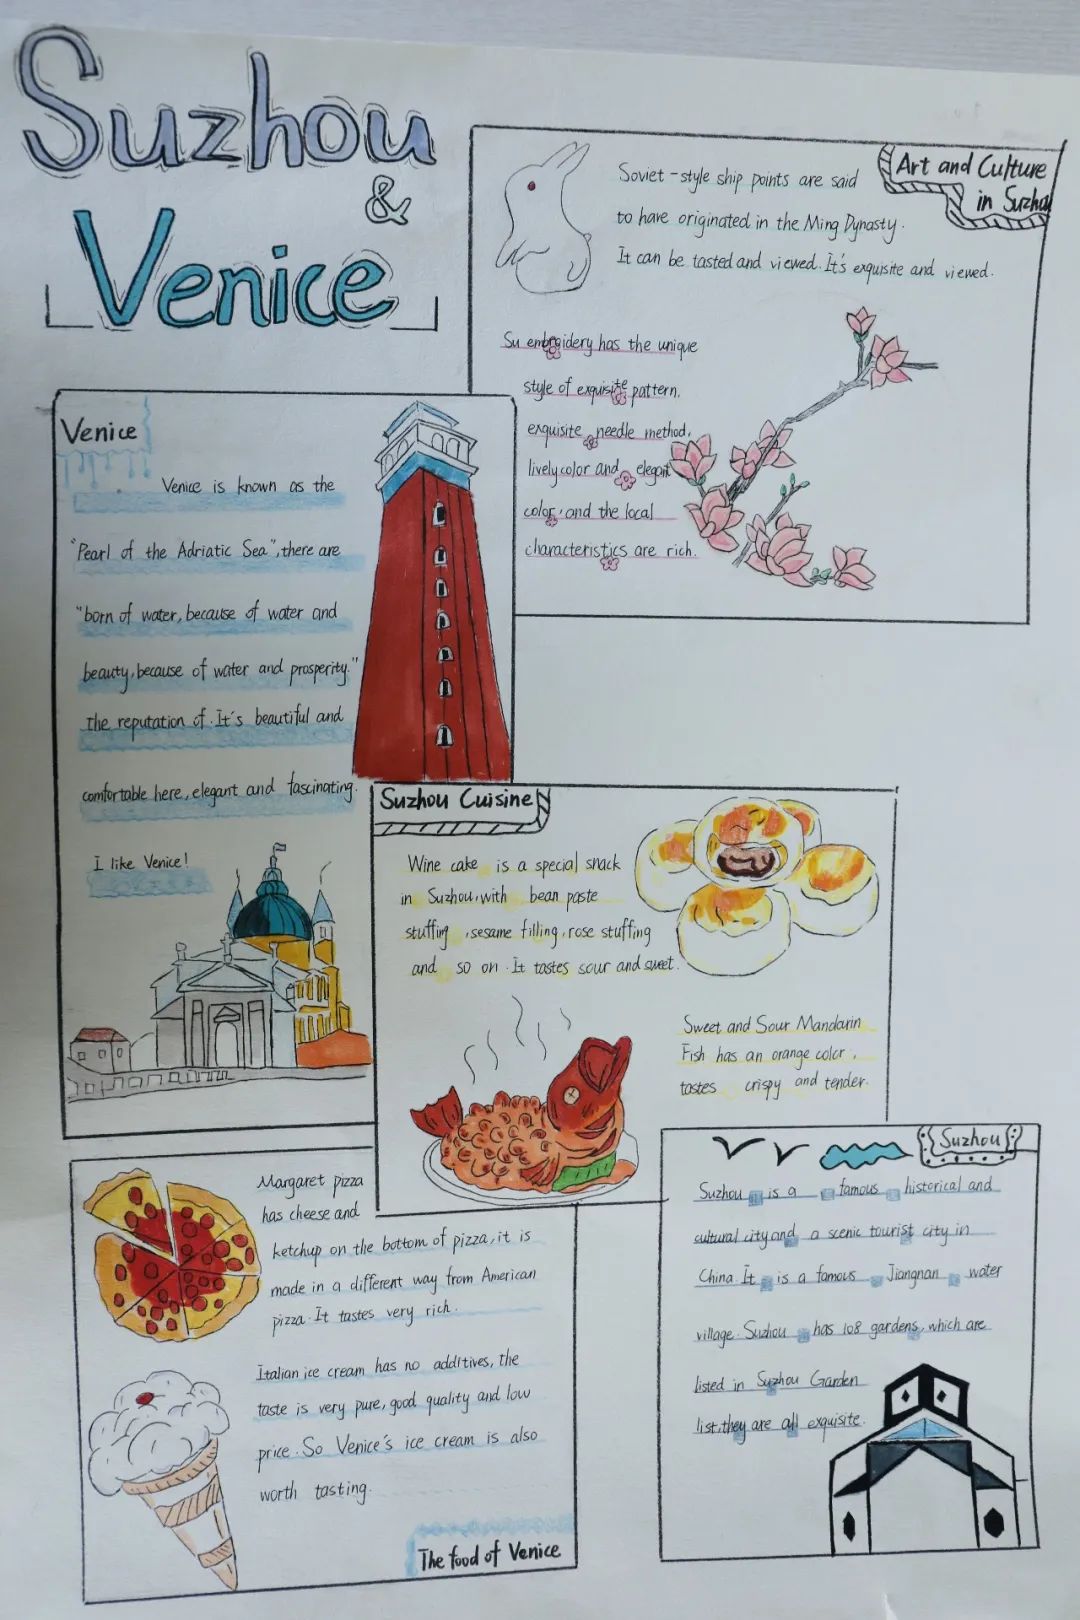 Suzhou
&
Venice
Art and Culture
in Suzhou
Soviet-style ship points are said
to have originated in the Ming Dynasty.
It can be tasted and viewed. It's exquisite and viewed.
Su embroidery has the unique
style of exquisite pattern.
exquisite needle method,
lively color and elegant
color, and the local
characteristics are rich.
Venice
Venice is known as the
"Pearl of the Adriatic Sea", there are
"born of water, because of water and
beauty, because of water and prosperity."
the reputation of. It's beautiful and
comfortable here, elegant and fascinating.
I like Venice!
Suzhou Cuisine
Wine cake is a special snack
in Suzhou, with bean paste
stuffing, sesame filling, rose stuffing
and so on. It tastes sour and sweet.
Sweet and Sour Mandarin
Fish has an orange color,
tastes crispy and tender.
Margaret pizza
has cheese and
ketchup on the bottom of pizza, it is
made in a different way from American
pizza. It tastes very rich.
Italian ice cream has no additives, the
taste is very pure, good quality and low
price. So Venice's ice cream is also
worth tasting.
The food of Venice
Suzhou
Suzhou is a famous historical and
cultural city and a scenic tourist city in
China. It is a famous Jiangnan water
village. Suzhou has 108 gardens, which are
listed in Suzhou Garden
list, they are all exquisite.